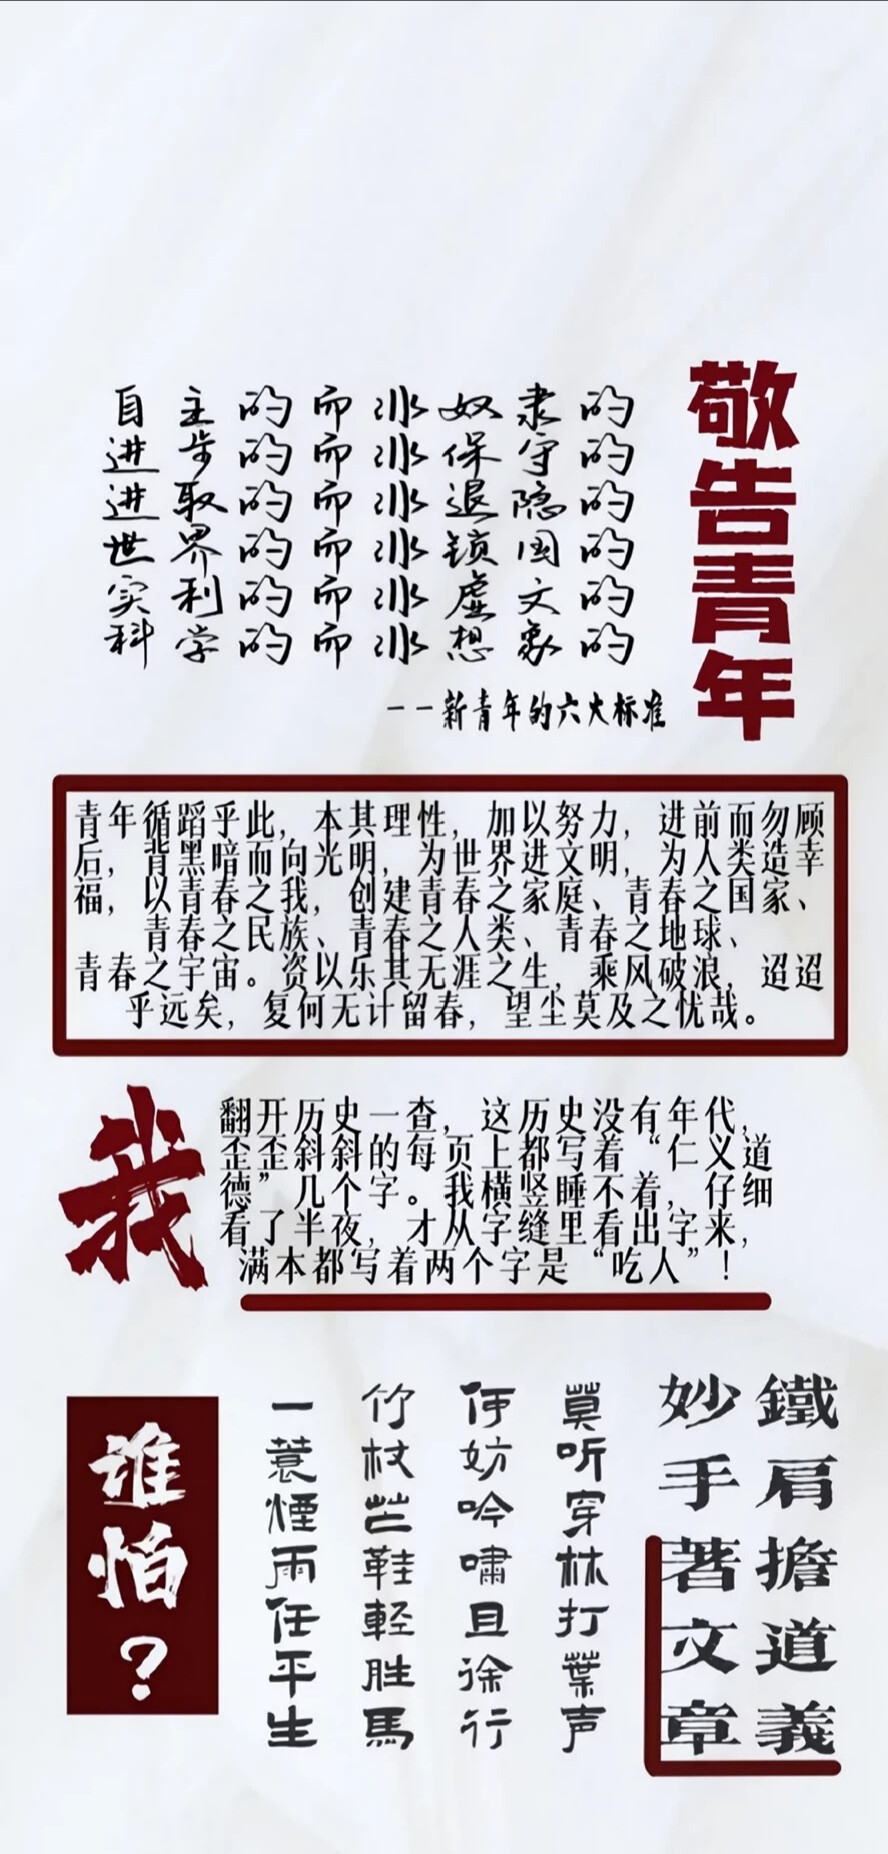 敬告青年
自主的而非奴隶的
进步的而非保守的
进取的而非退隐的
世界的而非锁国的
实利的而非虚文的
科学的而非想象的
--新青年的六大标准
青年循蹈乎此，本其理性，加以努力，进前而勿顾
后，背黑暗而向光明，为世界进文明，为人类造幸
福，以青春之我，创建青春之家庭、青春之国家、
青春之民族、青春之人类、青春之地球、
青春之宇宙。资以乐其无涯之生，乘风破浪，迢迢
乎远矣，复何无计留春，望尘莫及之忧哉。
我
翻开历史一查，这历史没有年代，
歪歪斜斜的每页上都写着“仁义道
德”几个字。我横竖睡不着，仔细
看了半夜，才从字缝里看出字来，
满本都写着两个字是“吃人”！
鐵肩擔道義
妙手著文章
莫听穿林打葉声
何妨吟啸且徐行
竹杖芒鞋輕胜馬
一蓑煙雨任平生
谁怕？